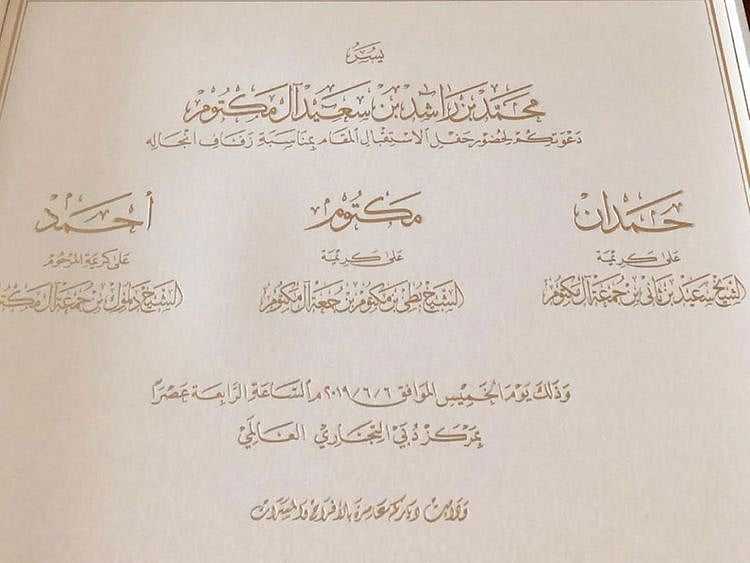 يسر
محمد بن راشد بن سعيد آل مكتوم
دعوتكم لحضور حفل الاستقبال المقام بمناسبة زفاف انجاله
حمدان
على كريمة
الشيخ سعيد بن ثاني بن جمعة آل مكتوم
مكتوم
على كريمة
الشيخ بطي بن مكتوم بن جمعة آل مكتوم
أحمد
على كريمة المرحوم
الشيخ دلموك بن جمعة آل مكتوم
وذلك يوم الخميس الموافق ٢٠١٩/٦/٦م الساعة الرابعة عصراً
بمركز دبي التجاري العالمي
ودامت دياركم عامرة بالأفراح والمسرات